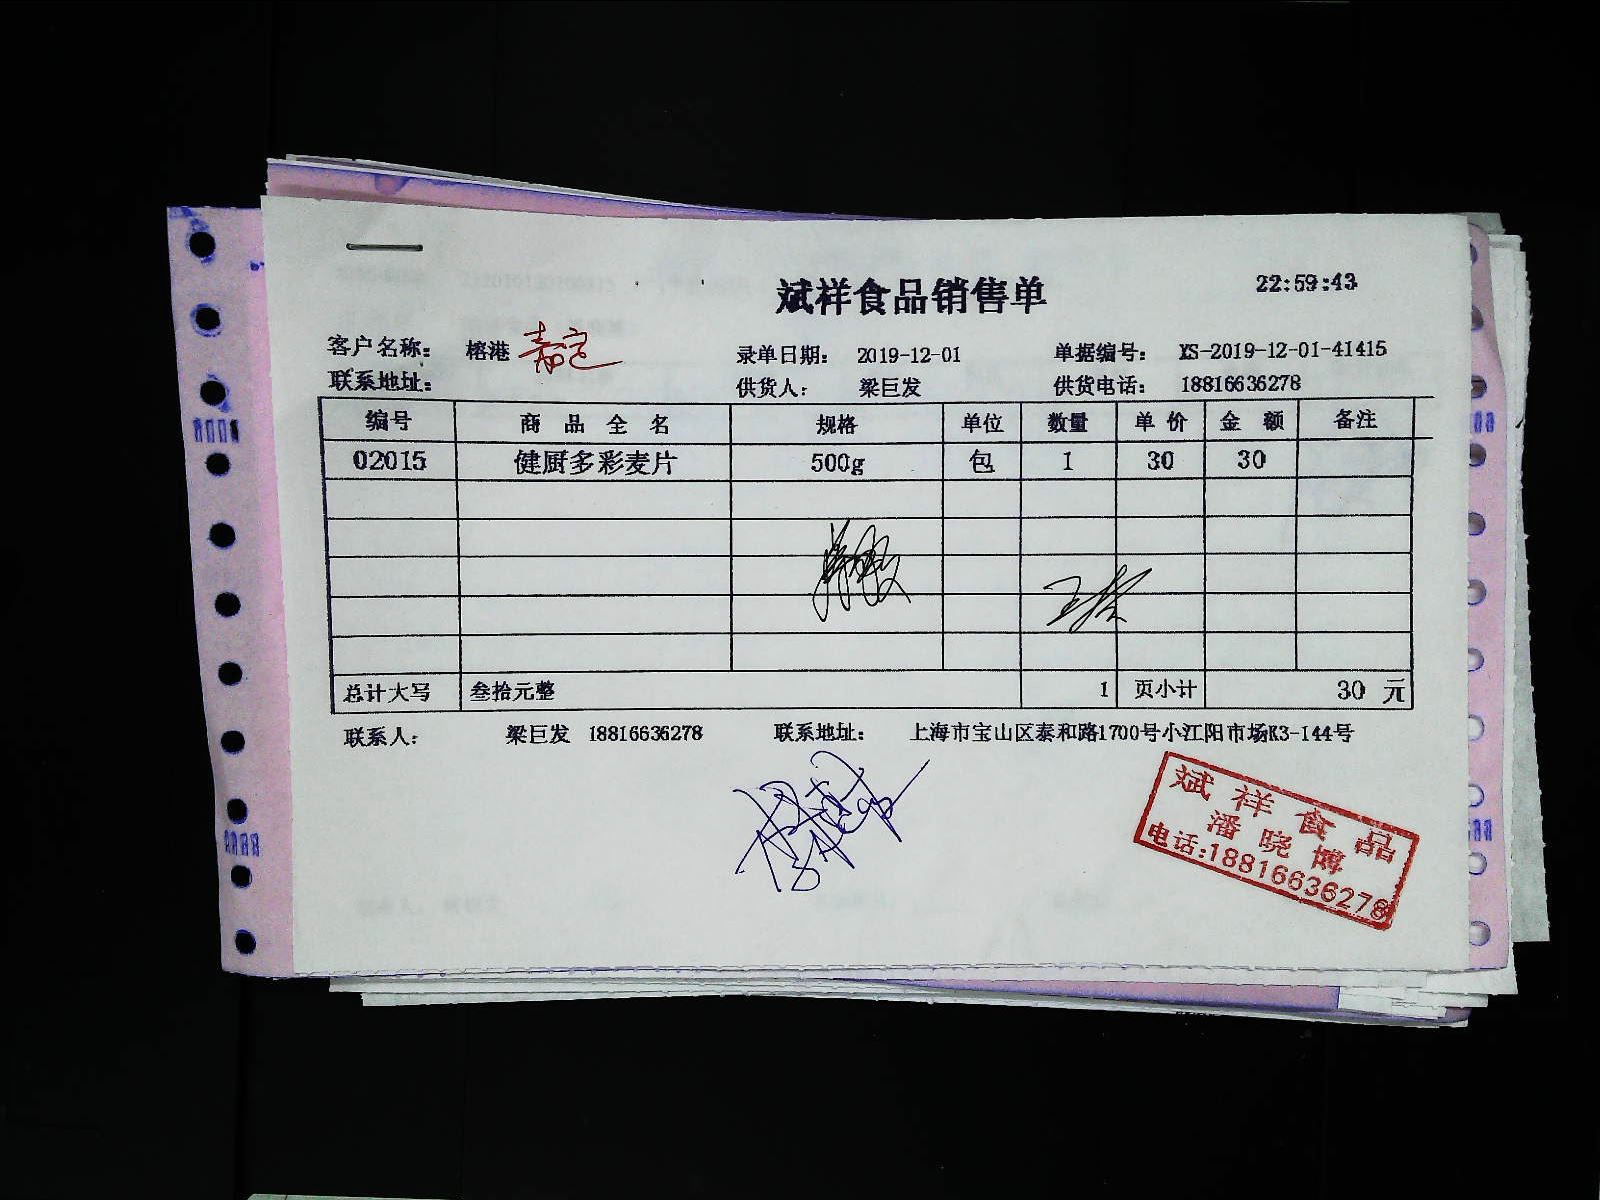 斌祥食品销售单 22:59:43
客户名称： 榕港 嘉定 录单日期： 2019-12-01 单据编号： XS-2019-12-01-41415
联系地址： 供货人： 梁巨发 供货电话： 18816636278
编号 商品全名 规格 单位 数量 单价 金额 备注
02015 健厨多彩麦片 500g 包 1 30 30
总计大写 叁拾元整 1 页小计 30 元
联系人： 梁巨发 18816636278 联系地址： 上海市宝山区泰和路1700号小江阳市场K3-144号
斌祥食品
潘晓博
电话:18816636278